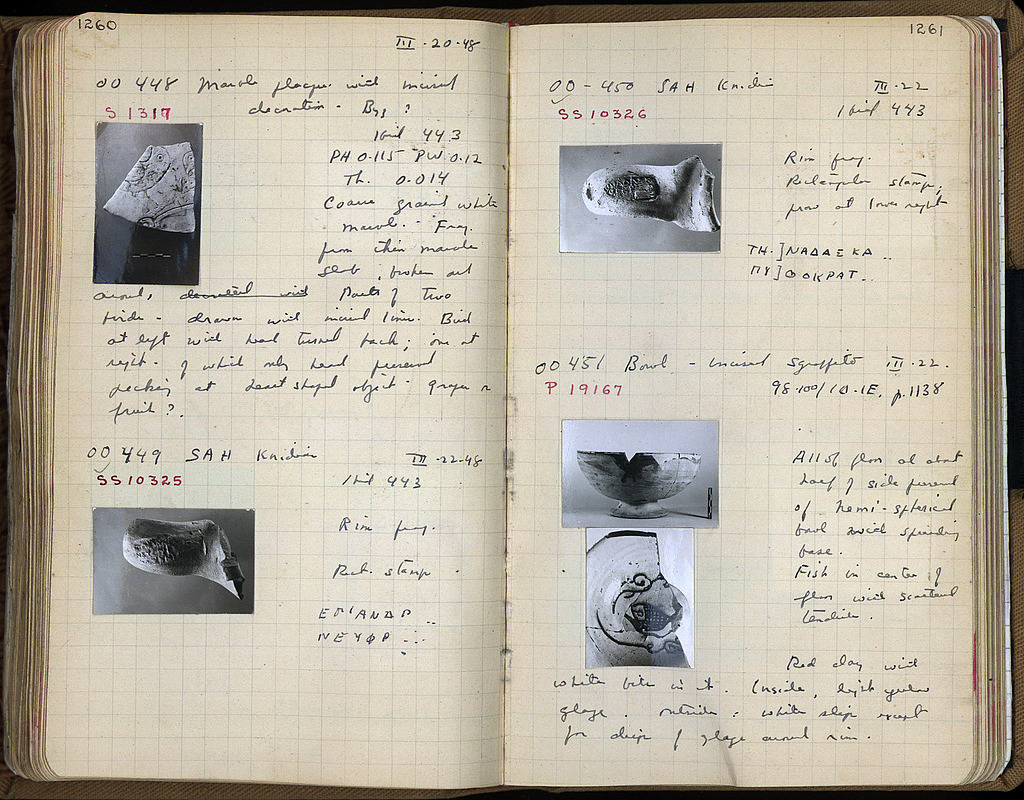 1260
III · 20 · 48
OO 448 Marble plaque with incised
S 1317 decoration - Byz ?
Ibid 443
PH 0.115 PW 0.12
Th. 0.014
Coarse grained white
marble. Frag.
from thin marble
slab, broken all
around, decorated with Parts of two
birds - drawn with incised lines. Bird
at left with head turned back; one at
right - of which only head preserved
pecking at heart shaped object - grapes or
fruit ?.
OO 449 SAH Knidian III · 22 · 48
SS 10325 Ibid 443
Rim frag.
Rect. stamp.
ΕΠ'ΑΝΔΡ ..
ΝΕΥΦΡ ...
1261
OO - 450 SAH Knidian III · 22
SS 10326 Ibid 443
Rim frag.
Rectangular stamp;
prow at lower right
ΤΗ·]ΝΑΔΑΣΚΑ ..
ΠΥ]ΘΟΚΡΑΤ ..
OO 451 Bowl - incised Sgraffito III · 22.
P 19167 98-100/ΙΘ-ΙΕ, p. 1138
All of floor and about
half of side preserved
of hemi-spherical
bowl with spreading
base.
Fish in center of
floor with scattered
tendrils.
Red clay with
white bits in it. Inside, light yellow
glaze. Outside: white slip except
for drips of glaze around rim.